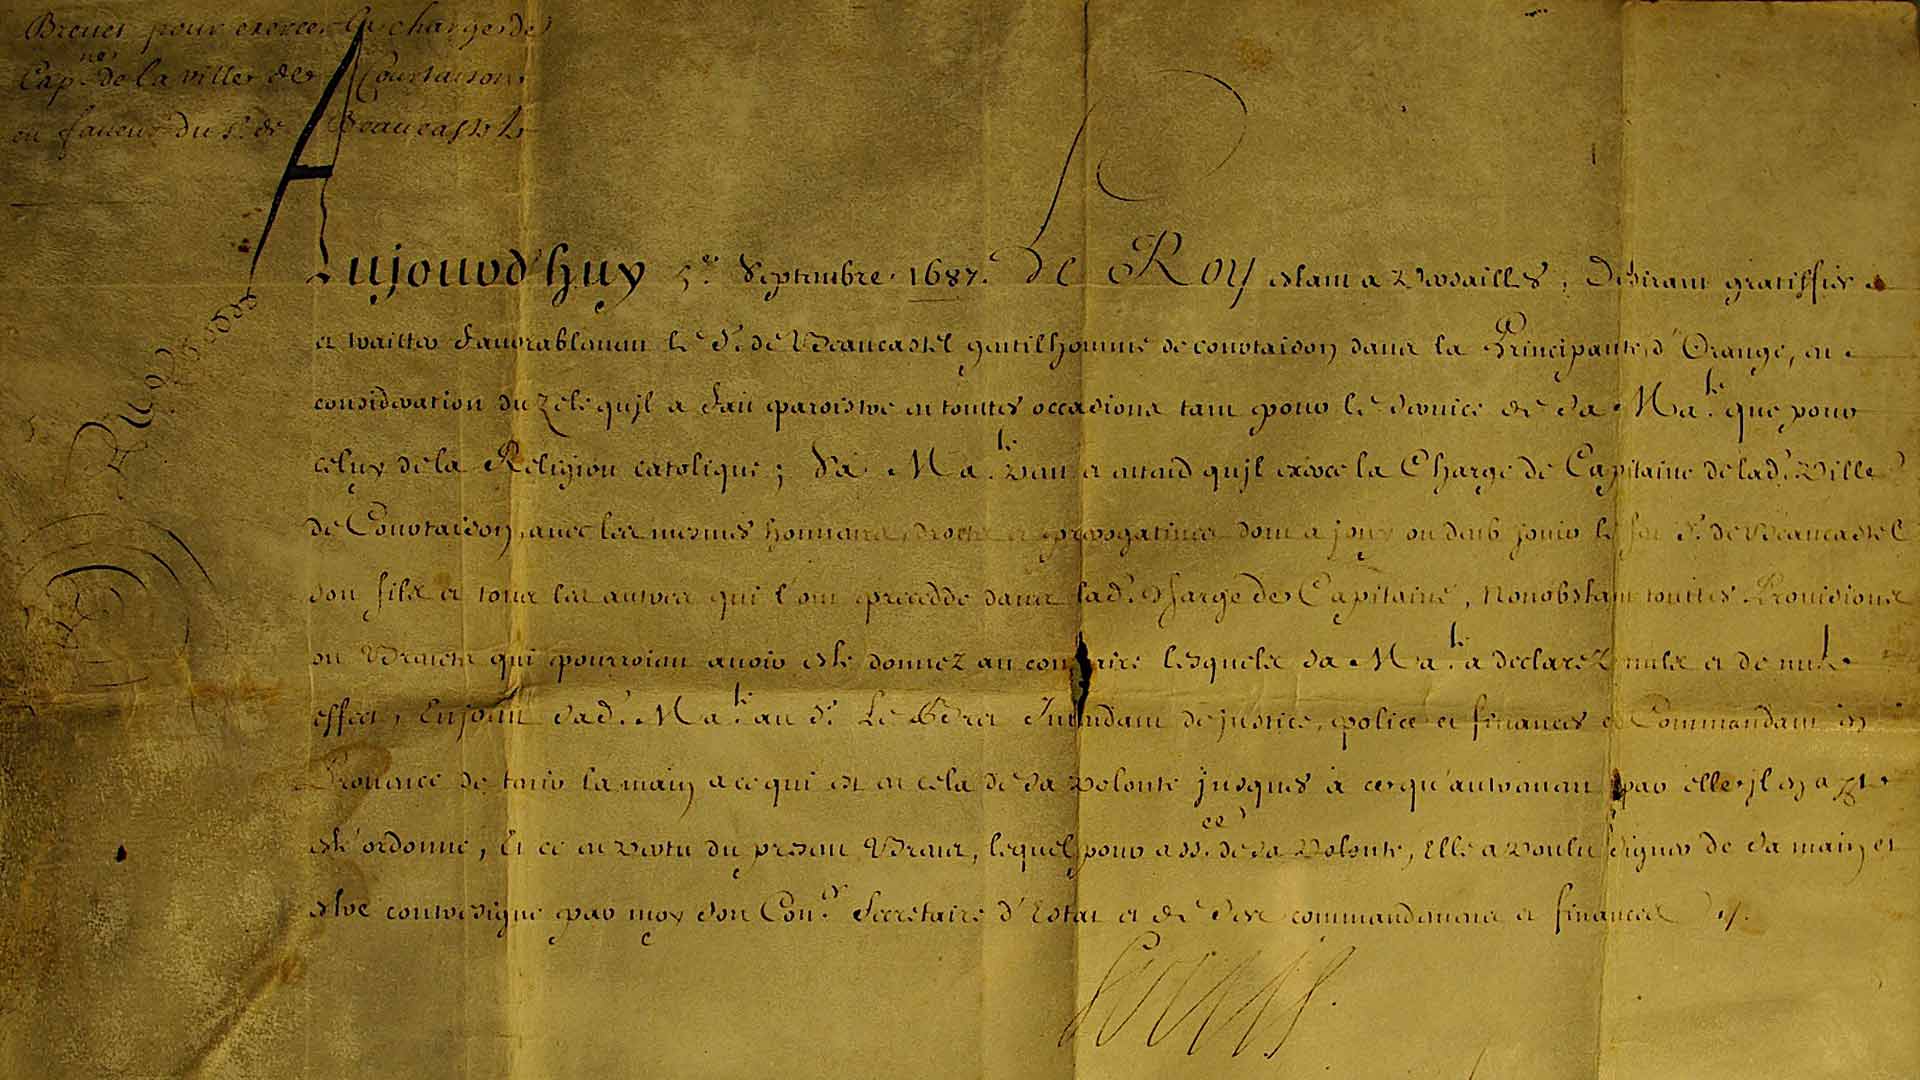 Brevet pour exercer la charge de
Cap.ne de la ville de Courtaison
en faveur du S.r de Beaucastel
Aujourd'huy 5.e Septembre 1687. Le Roy estant a Versailles, Desirant gratiffier
et traitter favorablement le S.r de Beaucastel gentilhomme de Courtaison dans la Principauté d'Orange, en
consideration du zele qu'jl a fait paroistre en touttes occasions tant pour le service de Sa Ma.té que pour
celuy de la Religion catolique; Sa Ma.té veut et entend qu'jl exerce la Charge de Capitaine de lad.e Ville
de Courtaison, avec les mesmes honneurs, droits et prerogatives dont a jouy ou deub jouir le feu S.r de Beaucastel
son fils et tous les autres qui l'ont precedde dans lad.e Charge de Capitaine, Nonobstant touttes Provisions
ou Brevets qui pourroient avoir esté donnez au contraire lesquels Sa Ma.té a declarez nuls et de nul
effect, Enjoint Sad.e Ma.té au S.r Le Bret Intendant de justice, police et finances et Commandant en
Provence de tenir la main a ce qui est en cela de Sa volonté jusques à ce qu'autrement par elle jl en ayt
esté ordonné, Et ce en vertu du present Brevet, lequel pour ass.ce de sa Volonté, Elle a voulu signer de Sa main et
estre contresigné par moy Son Con.er Secretaire d'Estat et de Ses commandemens et finances
Louis